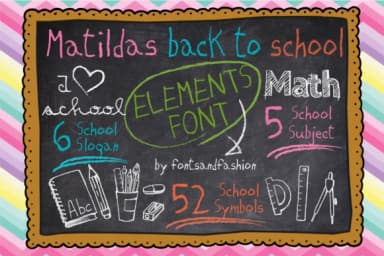 Matildas back to school
a ♡ school
ELEMENTS FONT
Math
6 School Slogan
5 School Subject
by fontsandfashion
52 School Symbols
Abc